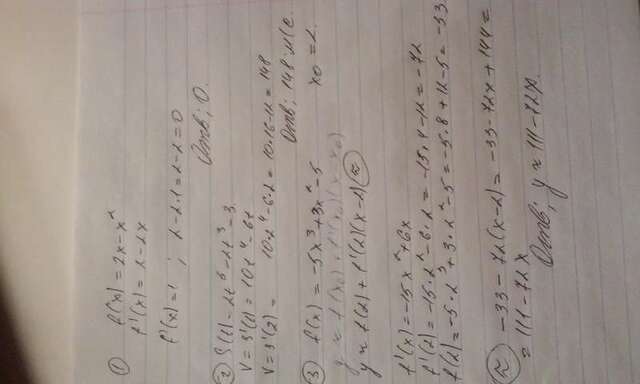 ① f(x) = 2x - x²
f'(x) = 2 - 2x
f'(x) = 1 ; 2 - 2·1 = 2 - 2 = 0
Отв; 0.
② S(t) - 2t⁵ - 2t³ - 3
V = S'(t) = 10t⁴ - 6t
V = S'(2) = 10·2⁴ - 6·2 = 10·16 - 12 = 148
Отв; 148 м/с.
③ f(x) = -5x³ + 3x² - 5 x₀ = 2.
y ≈ f(x₀) + f'(x₀)(x - x₀)
y ≈ f(2) + f'(2)(x - 2) ≈
f'(x) = -15x² + 6x
f'(2) = -15·2² - 6·2 = -15·4 - 12 = -72
f(2) = -5·2³ + 3·2² - 5 = -5·8 + 12 - 5 = -33
≈ -33 - 72(x - 2) = -33 - 72x + 144 =
= 111 - 72x
Отв; y ≈ 111 - 72x.